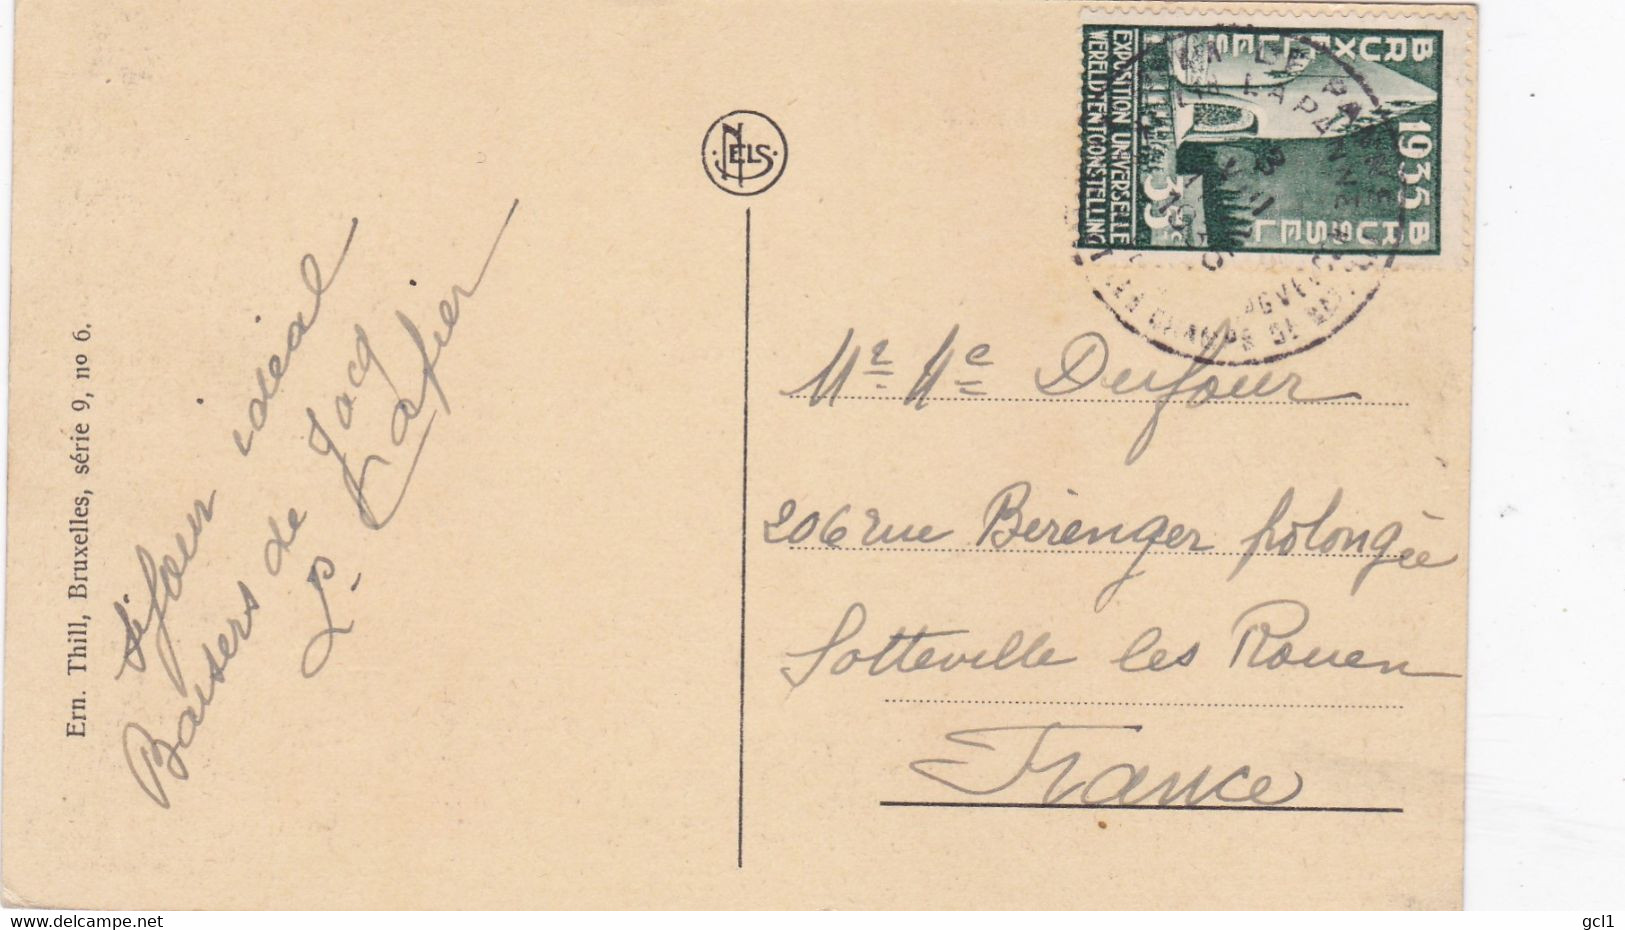 Ern. Thill, Bruxelles, série 9, no 6.
Séjour idéal
Baisers de Jacq
NELS
BRUXELLES 1935 BRUSSEL
EXPOSITION UNIVERSELLE
WERELDTENTOONSTELLING
35c
DE PANNE
LA PANNE
Mr Me Dufour
206 rue Bérenger polongée
Sotteville les Rouen
France
delcampe.net
gcl1